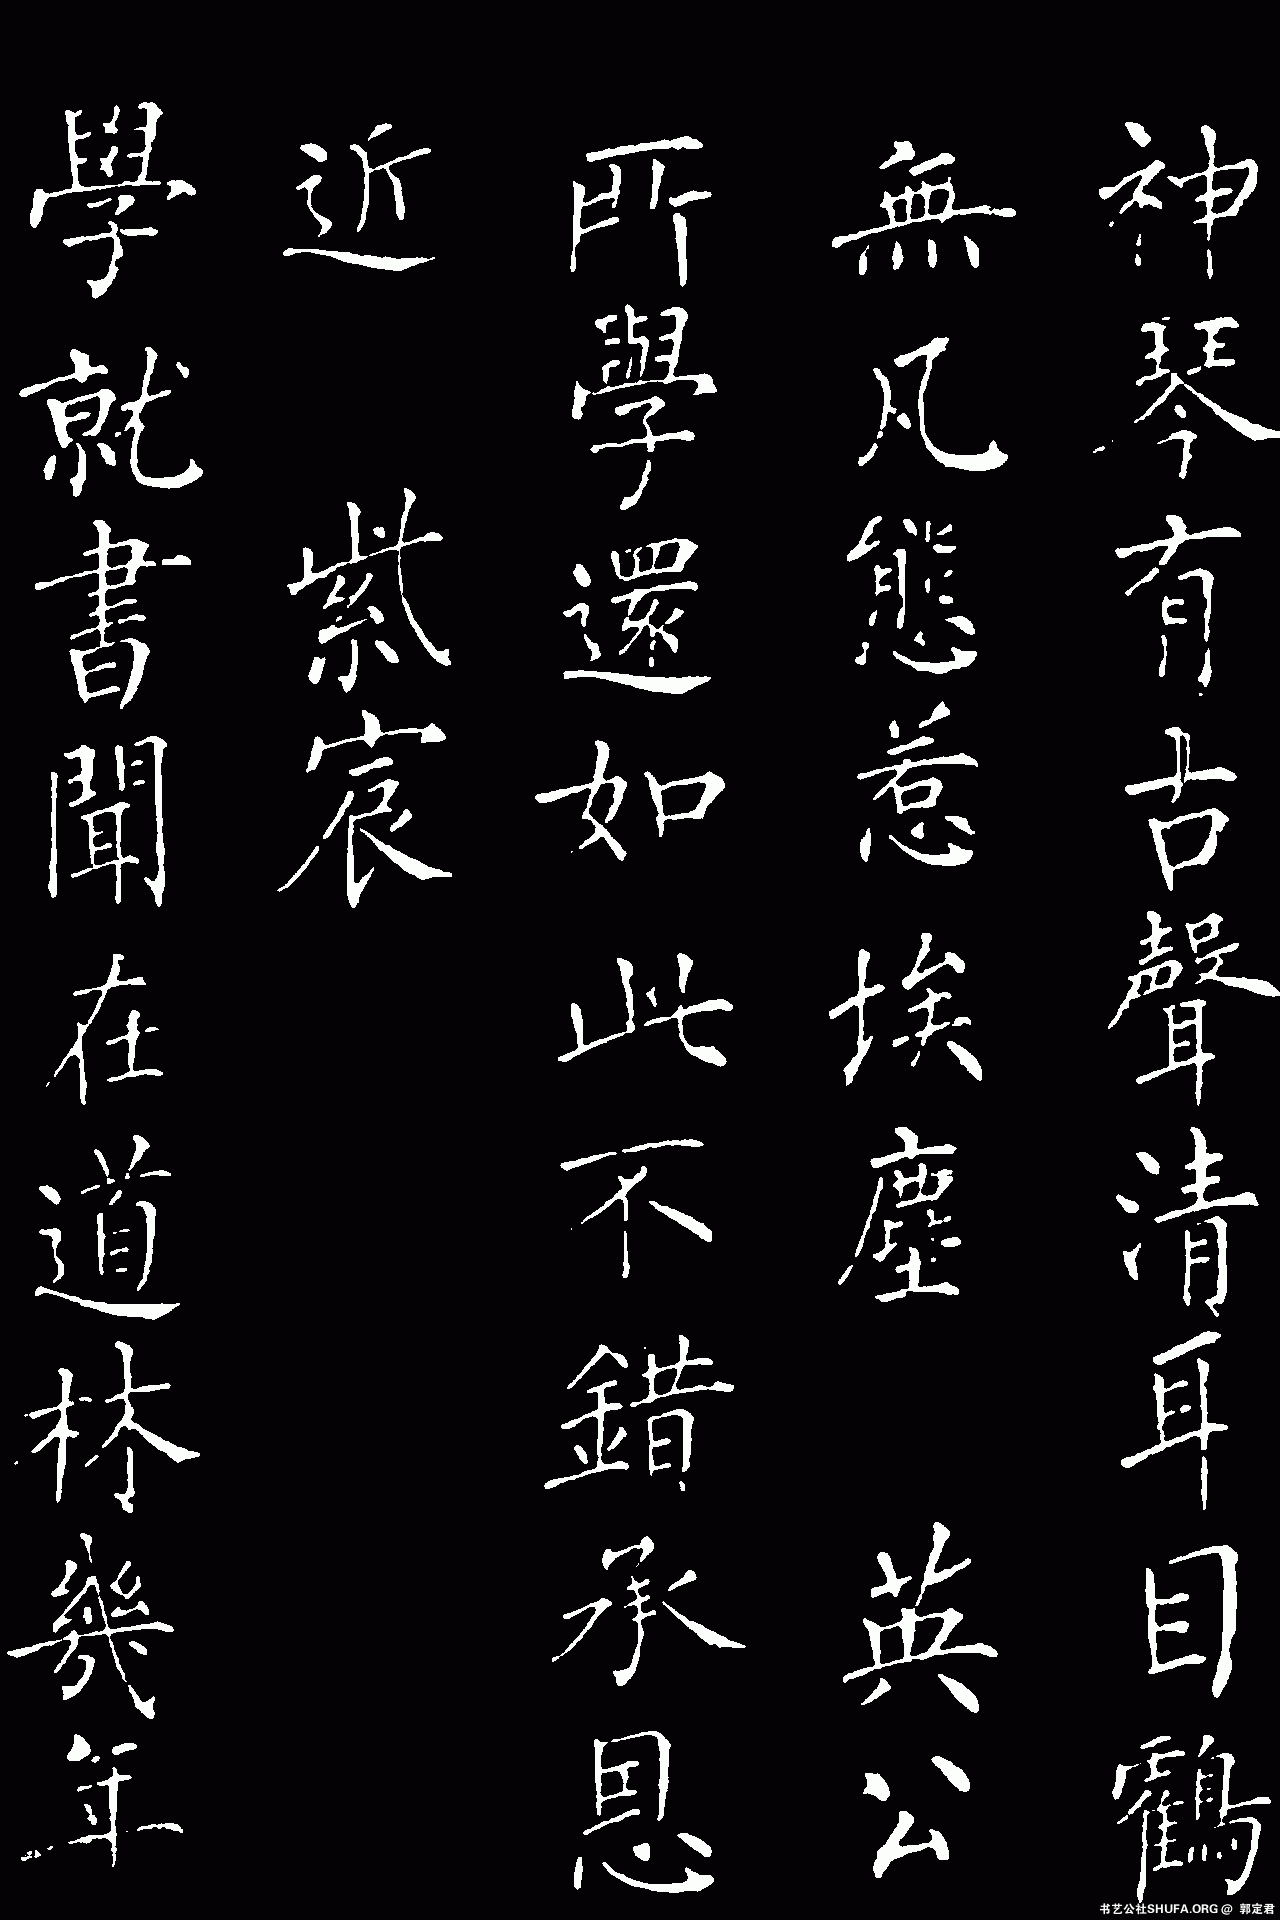 神琴有古聲清耳目鶴
無凡態惹埃塵 英公
所學還如此不錯承恩
近 紫宸
學就書聞在道林幾年
书艺公社SHUFA.ORG @ 郭定君